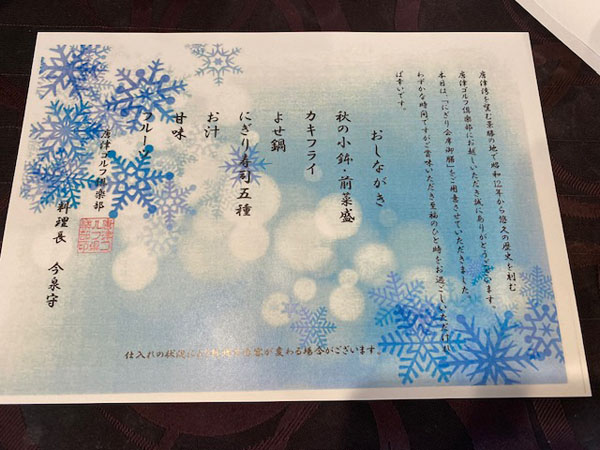 唐津湾を望む景勝の地で昭和12年から悠久の歴史を刻む
唐津ゴルフ倶楽部にお越しいただき誠にありがとうございます。
本日は、「にぎり会席御膳」をご用意させていただきました。
わずかな時間ですがご賞味いただき至福のひと時をお過ごしいただければ
幸いです。
おしながき
秋の小鉢・前菜盛
カキフライ
よせ鍋
にぎり寿司五種
お汁
甘味
フルーツ
唐津ゴルフ倶楽部
料理長 今泉守
仕入れの状況により内容が変わる場合がございます。